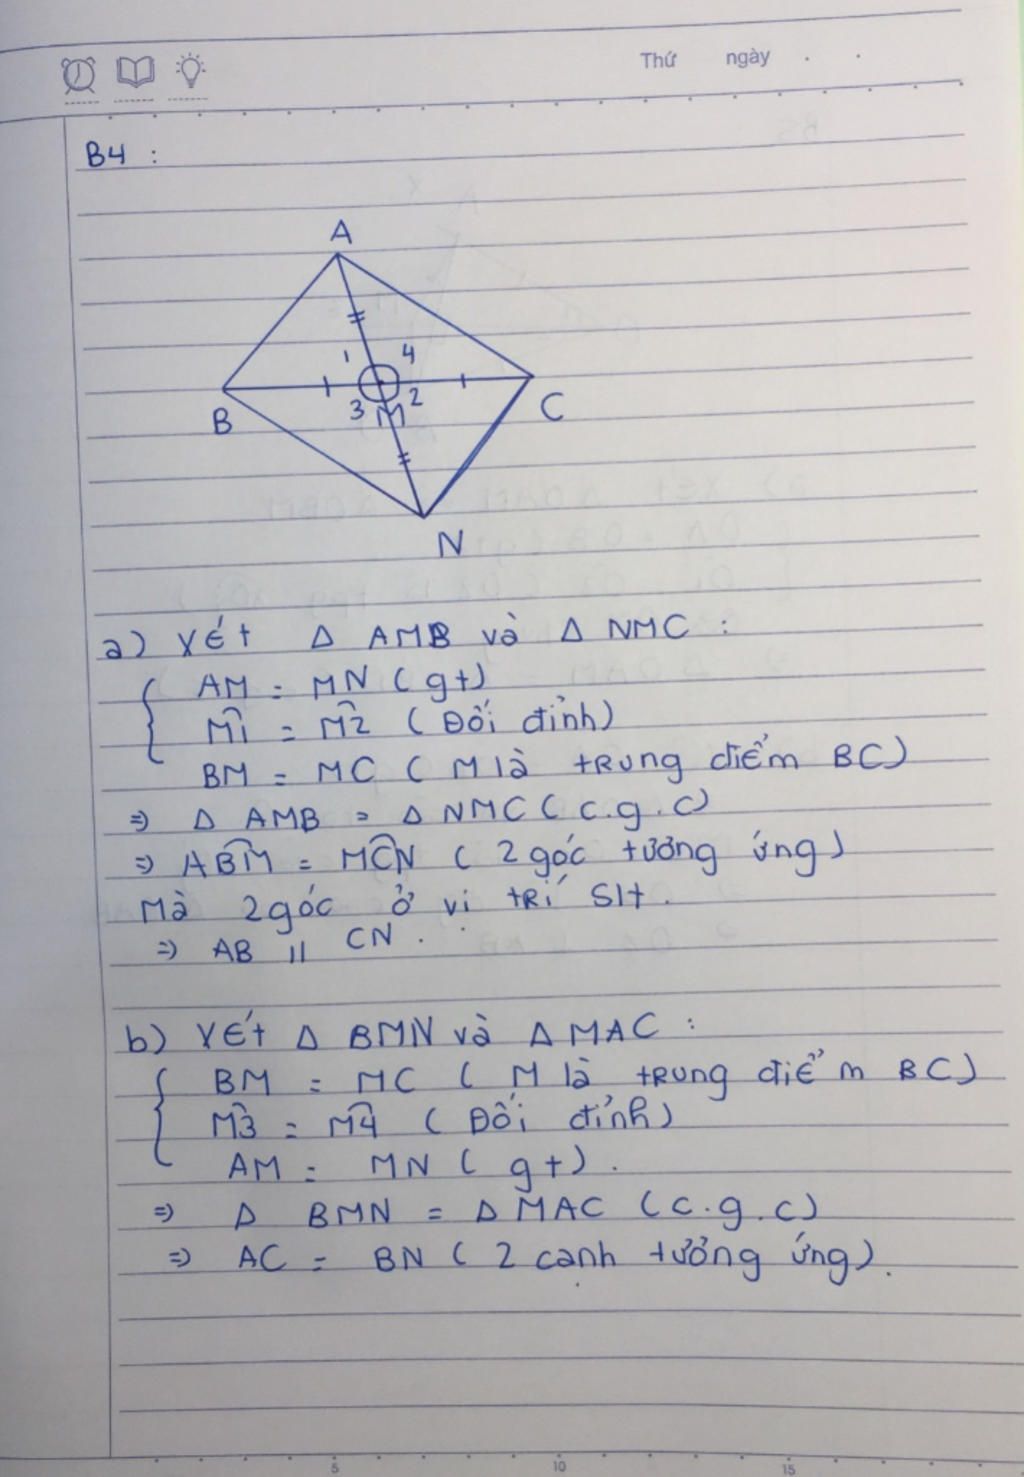 Thứ ngày . .
B4 :
A
1 4
B 3 M 2 C
N
a) Xét Δ AMB và Δ NMC :
AM = MN ( gt )
M̂1 = M̂2 ( Đối đỉnh )
BM = MC ( M là trung điểm BC )
⇒ Δ AMB = Δ NMC ( c.g.c )
⇒ AB̂M = MĈN ( 2 góc tương ứng )
Mà 2 góc ở vị trí Slt .
⇒ AB // CN .
b) Xét Δ BMN và Δ MAC :
BM = MC ( M là trung điểm BC )
M̂3 = M̂4 ( Đối đỉnh )
AM = MN ( gt ) .
⇒ Δ BMN = Δ MAC ( c.g.c )
⇒ AC = BN ( 2 cạnh tưởng ứng ) .
5 10 15